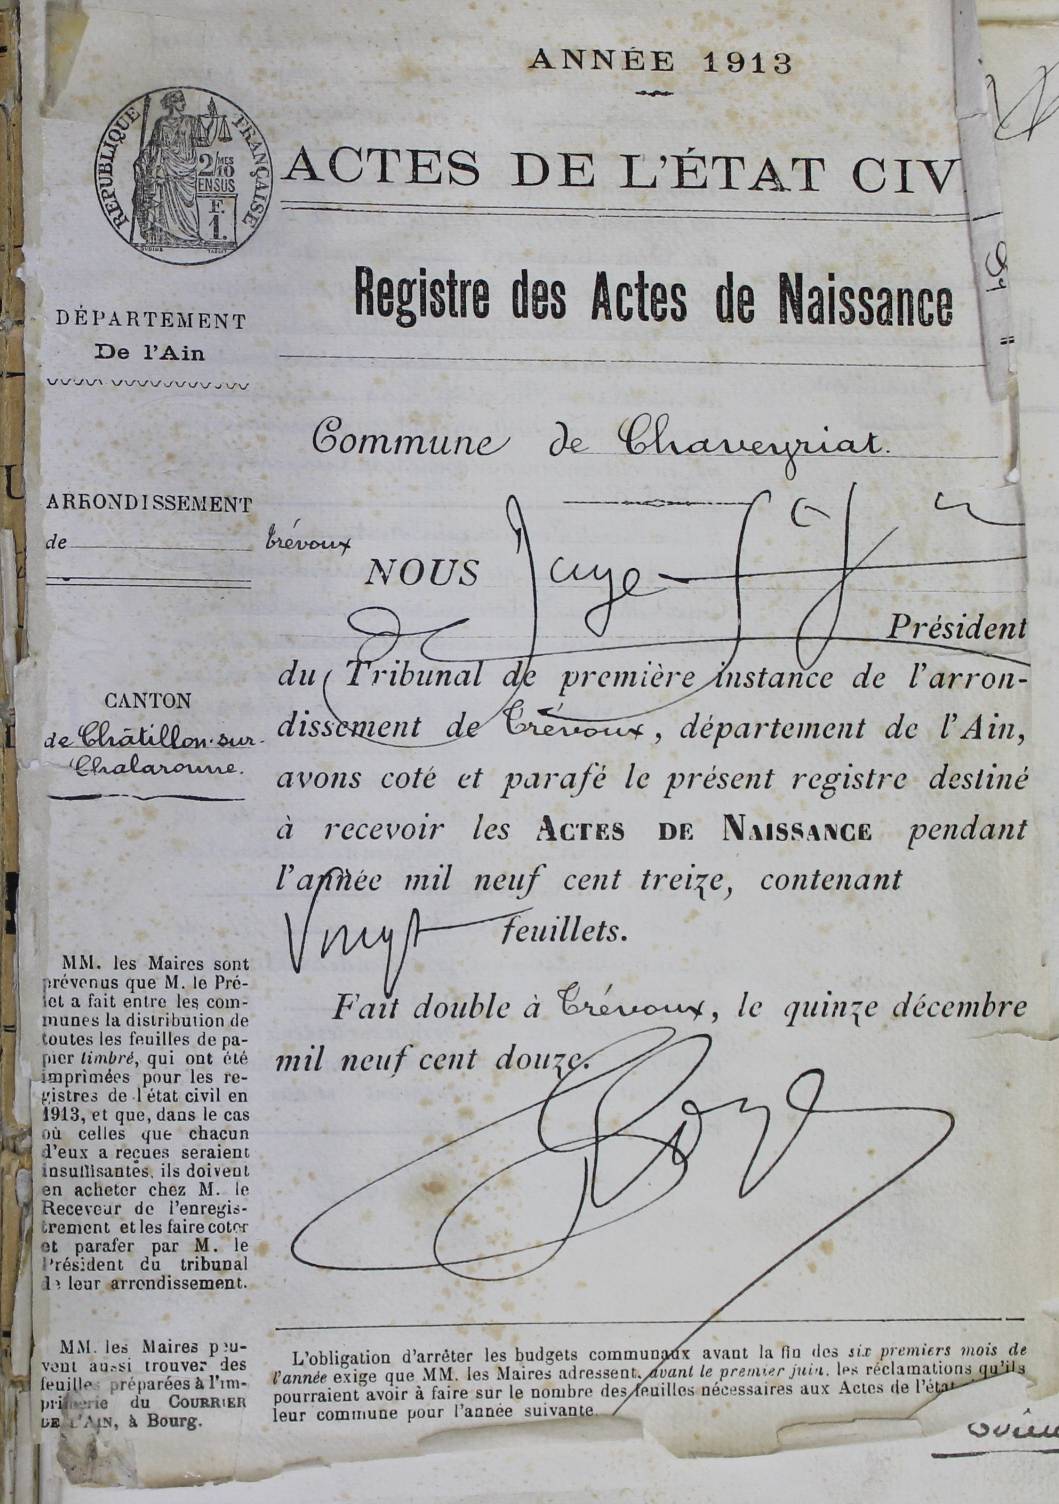 ANNÉE 1913
RÉPUBLIQUE FRANÇAISE
2/10 MES
EN SUS
F.
1.
ACTES DE L'ÉTAT CIV
Registre des Actes de Naissance
DÉPARTEMENT
De l'Ain
Commune de Chaveyriat.
ARRONDISSEMENT
de Trévoux
NOUS
Président
du Tribunal de première instance de l'arron-
dissement de Trévoux, département de l'Ain,
avons coté et parafé le présent registre destiné
à recevoir les ACTES DE NAISSANCE pendant
l'année mil neuf cent treize, contenant
Vingt feuillets.
Fait double à Trévoux, le quinze décembre
mil neuf cent douze.
CANTON
de Châtillon-sur-
Chalaronne.
MM. les Maires sont
prévenus que M. le Pré-
fet a fait entre les com-
munes la distribution de
toutes les feuilles de pa-
pier timbré, qui ont été
imprimées pour les re-
gistres de l'état civil en
1913, et que, dans le cas
où celles que chacun
d'eux a reçues seraient
insuffisantes, ils doivent
en acheter chez M. le
Receveur de l'enregis-
trement et les faire coter
et parafer par M. le
Président du tribunal
de leur arrondissement.
MM. les Maires peu-
vent aussi trouver des
feuilles préparées à l'im-
primerie du COURRIER
DE L'AIN, à Bourg.
L'obligation d'arrêter les budgets communaux avant la fin des six premiers mois de
l'année exige que MM. les Maires adressent, avant le premier juin, les réclamations qu'ils
pourraient avoir à faire sur le nombre des feuilles nécessaires aux Actes de l'état
leur commune pour l'année suivante.